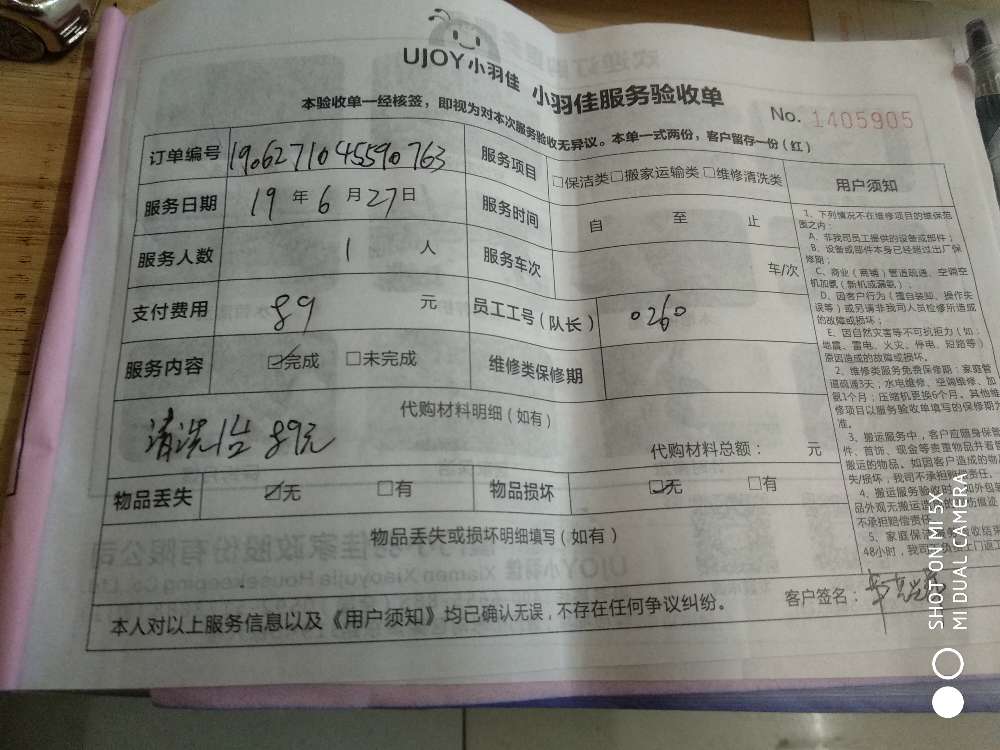 UJOY小羽佳 小羽佳服务验收单
No. 1405905
本验收单一经核签，即视为对本次服务验收无异议。本单一式两份，客户留存一份（红）
订单编号 1906271045590763 服务项目 □保洁类□搬家运输类□维修清洗类
服务日期 19 年 6 月 27 日 服务时间 自 至 止
服务人数 1 人 服务车次 车/次
支付费用 89 元 员工工号（队长） 0260
服务内容 ☑完成 □未完成 维修类保修期
代购材料明细（如有）
清洗1台 89元
代购材料总额： 元
物品丢失 ☑无 □有 物品损坏 ☑无 □有
物品丢失或损坏明细填写（如有）
本人对以上服务信息以及《用户须知》均已确认无误，不存在任何争议纠纷。 客户签名：
用户须知
1、下列情况不在维修项目的维保范
围之内：
A、非我司员工提供的设备或部件；
B、设备或部件本身已经超过出厂保
修期；
C、商业（商铺）管道疏通、空调空
机加氨（新机或漏氨）；
D、因客户行为（擅自装卸、操作失
误等）或另请非我司人员检修所造成
的故障或损坏；
E、因自然灾害等不可抗拒力（如：
地震、雷电、火灾、停电、短路等）
原因造成的故障或损坏。
2、维修类服务免费保修期：家庭管
道疏通3天，水电维修、空调维修、加
氨1个月；压缩机更换6个月。其他维
修项目以服务验收单填写的保修期为
准。
3、搬运服务中，客户应随身保管
件、首饰、现金等贵重物品并看管
搬运的物品。如因客户造成的物品
失/损坏，我司不承担赔偿责任。
4、搬运服务验收时
品外观无搬运
不承担赔偿责任
5、家庭保洁
48小时，我司
SHOT ON MI 5X
MI DUAL CAMERA